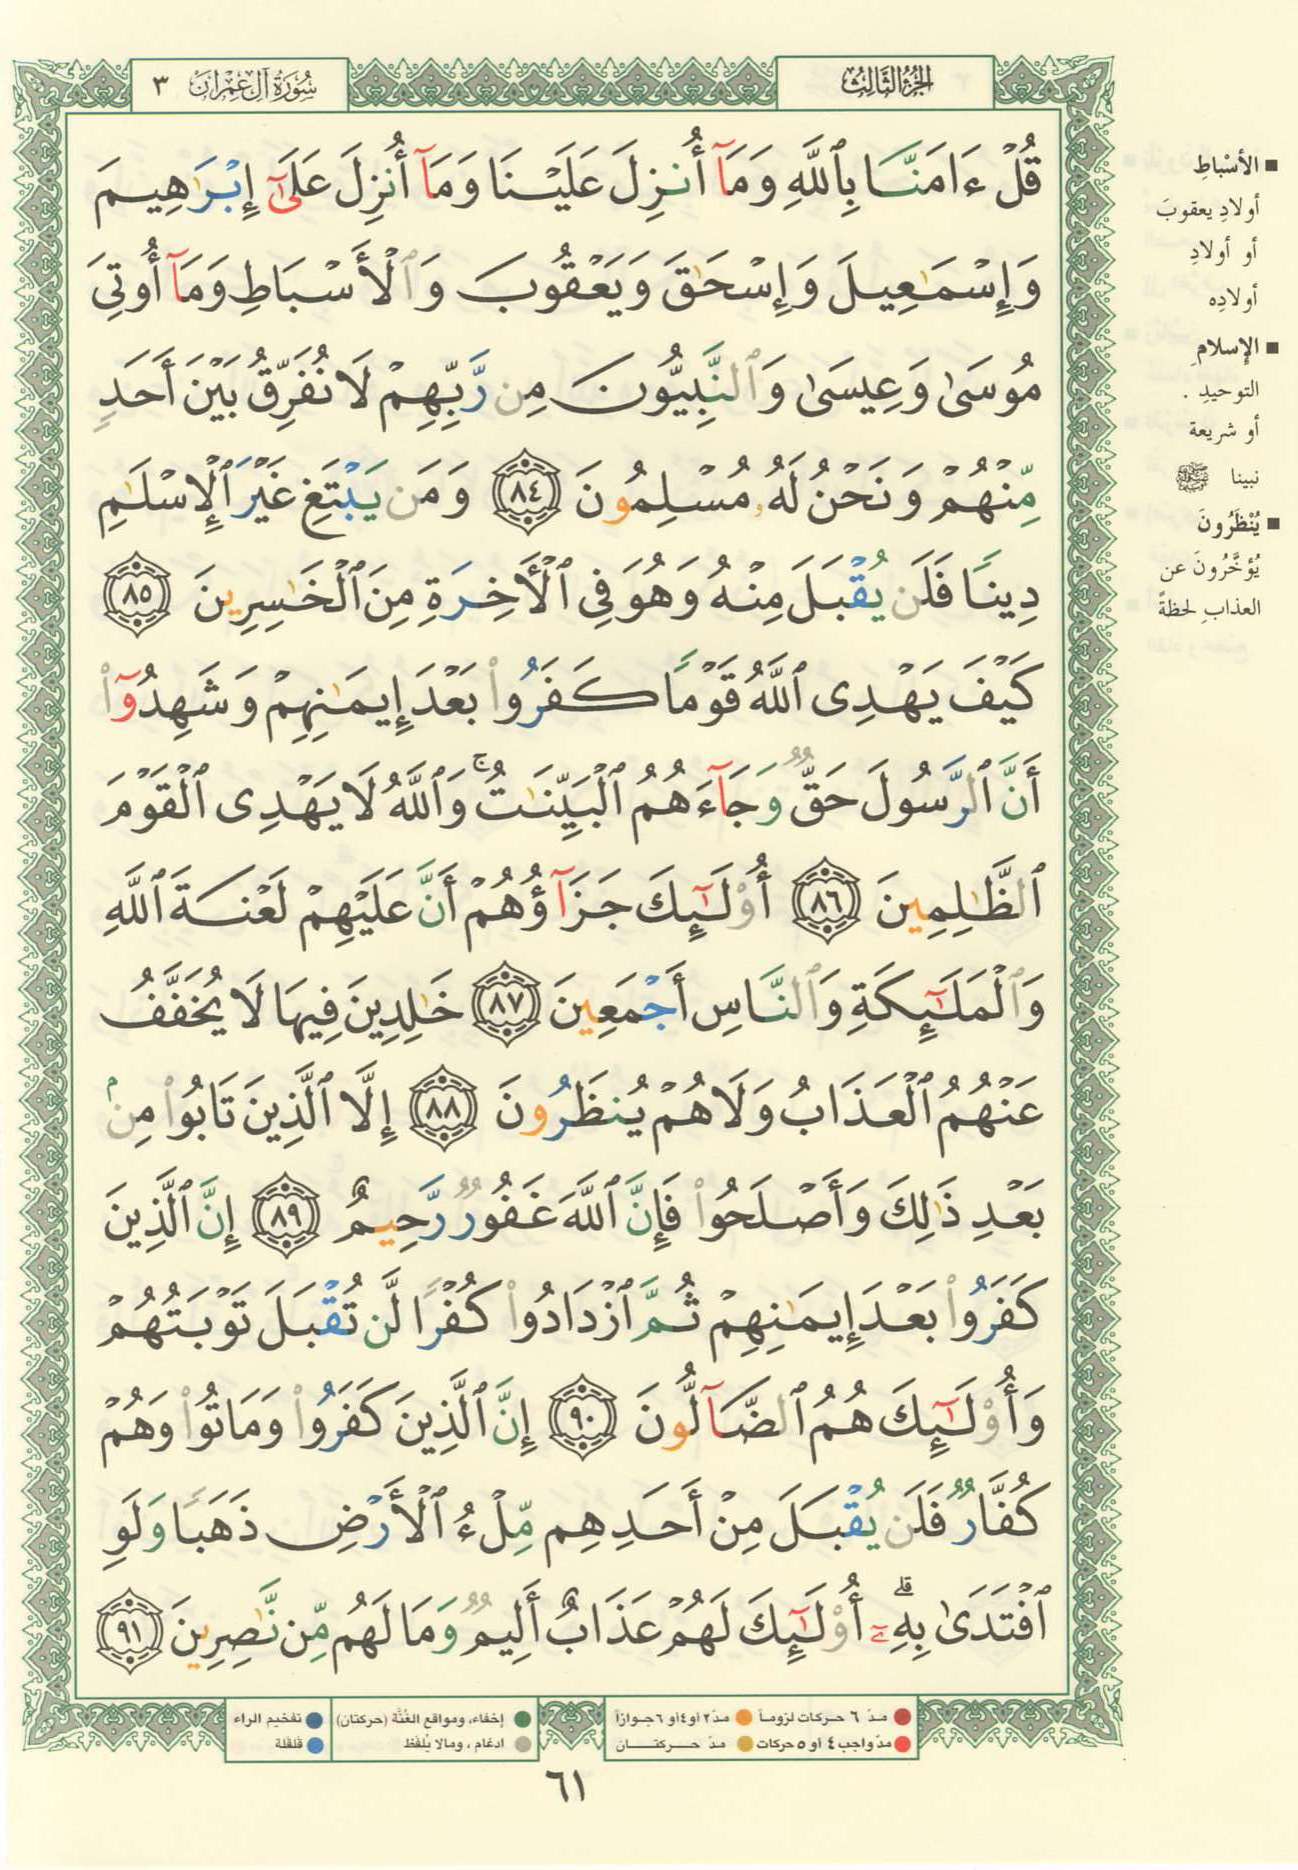 سُورَةُ آلِ عِمْرَانَ ٣
الجُزْءُ الثَّالِثُ
قُلْ ءَامَنَّا بِٱللَّهِ وَمَآ أُنزِلَ عَلَيْنَا وَمَآ أُنزِلَ عَلَىٰٓ إِبْرَٰهِيمَ
وَإِسْمَٰعِيلَ وَإِسْحَٰقَ وَيَعْقُوبَ وَٱلْأَسْبَاطِ وَمَآ أُوتِىَ
مُوسَىٰ وَعِيسَىٰ وَٱلنَّبِيُّونَ مِن رَّبِّهِمْ لَا نُفَرِّقُ بَيْنَ أَحَدٍ
مِّنْهُمْ وَنَحْنُ لَهُۥ مُسْلِمُونَ ٨٤ وَمَن يَبْتَغِ غَيْرَ ٱلْإِسْلَٰمِ
دِينًا فَلَن يُقْبَلَ مِنْهُ وَهُوَ فِى ٱلْأَخِرَةِ مِنَ ٱلْخَٰسِرِينَ ٨٥
كَيْفَ يَهْدِى ٱللَّهُ قَوْمًا كَفَرُوا۟ بَعْدَ إِيمَٰنِهِمْ وَشَهِدُوٓا۟
أَنَّ ٱلرَّسُولَ حَقٌّ وَجَآءَهُمُ ٱلْبَيِّنَٰتُ ۚ وَٱللَّهُ لَا يَهْدِى ٱلْقَوْمَ
ٱلظَّٰلِمِينَ ٨٦ أُو۟لَٰٓئِكَ جَزَآؤُهُمْ أَنَّ عَلَيْهِمْ لَعْنَةَ ٱللَّهِ
وَٱلْمَلَٰٓئِكَةِ وَٱلنَّاسِ أَجْمَعِينَ ٨٧ خَٰلِدِينَ فِيهَا لَا يُخَفَّفُ
عَنْهُمُ ٱلْعَذَابُ وَلَا هُمْ يُنظَرُونَ ٨٨ إِلَّا ٱلَّذِينَ تَابُوا۟ مِنۢ
بَعْدِ ذَٰلِكَ وَأَصْلَحُوا۟ فَإِنَّ ٱللَّهَ غَفُورٌ رَّحِيمٌ ٨٩ إِنَّ ٱلَّذِينَ
كَفَرُوا۟ بَعْدَ إِيمَٰنِهِمْ ثُمَّ ٱزْدَادُوا۟ كُفْرًا لَّن تُقْبَلَ تَوْبَتُهُمْ
وَأُو۟لَٰٓئِكَ هُمُ ٱلضَّآلُّونَ ٩٠ إِنَّ ٱلَّذِينَ كَفَرُوا۟ وَمَاتُوا۟ وَهُمْ
كُفَّارٌ فَلَن يُقْبَلَ مِنْ أَحَدِهِم مِّلْءُ ٱلْأَرْضِ ذَهَبًا وَلَوِ
ٱفْتَدَىٰ بِهِۦٓ ۗ أُو۟لَٰٓئِكَ لَهُمْ عَذَابٌ أَلِيمٌ وَمَا لَهُم مِّن نَّٰصِرِينَ ٩١
■ الأسْبَاطِ
أولادِ يعقوبَ
أو أولادِ
أولادِه
■ الإسلامِ
التوحيدِ .
أو شريعة
نبينا ﷺ
■ يُنْظَرُونَ
يُؤخَّرُونَ عن
العذابِ لحظةً
● مدّ ٦ حركات لزوماً ● مدّ ٢ أو ٤ أو ٦ جوازاً
● مدّ واجب ٤ أو ٥ حركات ● مدّ حركتان
● إخفاء، ومواقع الغُنَّة (حركتان) ● تفخيم الراء
● ادغام ، ومالا يُلفَظ ● قلقلة
٦١